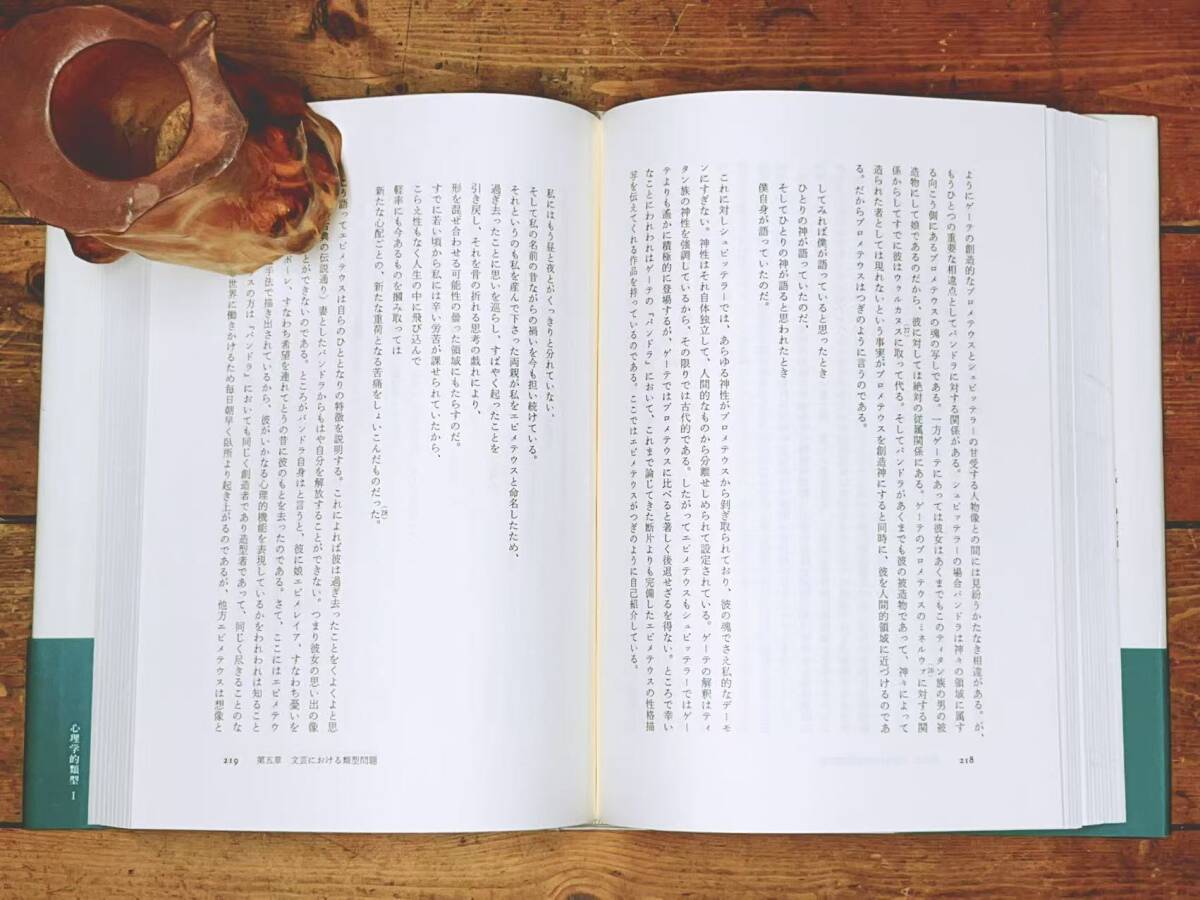 ようにゲーテの創造的なプロメテウスとシュピッテラーの甘受する人物像との間には見紛うかたなき相違がある。が、
もうひとつの重要な相違点としてパンドラに対する関係がある。シュピッテラーの場合パンドラは神々の領域に属す
る向こう側にあるプロメテウスの魂の写しである。一方ゲーテにあっては彼女はあくまでもこのティタン族の男の被
造物にして娘であるのだから、彼に対しては絶対の従属関係にある。ゲーテのプロメテウスのミネルヴァに対する関
係からしてすでに彼はウゥルカヌスに取って代る。そしてパンドラがあくまでも彼の被造物であって、神々によって
造られた者としては現れないという事実がプロメテウスを創造神にすると同時に、彼を人間的領域に近づけるのであ
る。だからプロメテウスはつぎのように言うのである。
してみれば僕が語っていると思ったとき
ひとりの神が語っていたのだ、
そしてひとりの神が語ると思われたとき
僕自身が語っていたのだ。
これに対しシュピッテラーでは、あらゆる神性がプロメテウスから剝ぎ取られており、彼の魂でさえ私的なデーモ
ンにすぎない。神性はそれ自体独立して、人間的なものから分離せしめられて設定されている。ゲーテの解釈はティ
タン族の神性を強調しているから、その限りでは古代的である。したがってエピメテウスもシュピッテラーではゲー
テよりも遙かに積極的に登場するが、ゲーテではプロメテウスに比べると著しく後退せざるを得ない。ところで幸い
なことにわれわれはゲーテの『パンドラ』において、これまで論じてきた断片よりも完備したエピメテウスの性格描
写を伝えてくれる作品を持っているのである。ここではエピメテウスがつぎのように自己紹介している。
218
私にはもう昼と夜とがくっきりと分れていない、
そして私の名前の昔ながらの禍いを今も担い続けている。
それというのも私を産んで下さった両親が私をエピメテウスと命名したため、
過ぎ去ったことに思いを巡らし、すばやく起ったことを
引き戻し、それを昔の折れる思考の戯れにより、
形を混ぜ合わせる可能性の曇った領域にもたらすのだ。
すでに若い頃から私には辛い労苦が課せられていたから、
こらえ性もなく人生の中に飛び込んで
軽率にも今あるものを摑み取っては
新たな心配ごとの、新たな重荷となる苦痛をしょいこんだものだった。
語ってエピメテウスは自らのひととなりの特徴を説明する。これによれば彼は過ぎ去ったことをくよくよと思
の伝説通り）妻としたパンドラからもはや自分を解放することができない。つまり彼女の思い出の像
とができないのである。ところがパンドラ自身はと言うと、彼に娘エピメレイア、すなわち憂いを
ポーレ、すなわち希望を連れてとうの昔に彼のもとを去ったのである。さて、ここにはエピメテウ
手法で描き出されているから、彼がいかなる心理的機能を表現しているかをわれわれは知ること
スの方は『パンドラ』においても同じく創造者であり造型者であって、同じく尽きることのな
世界に働きかけるため毎日朝早く臥所より起き上がるのであるが、他方エピメテウスは想像と
219 第五章 文芸における類型問題
心理学的類型 I